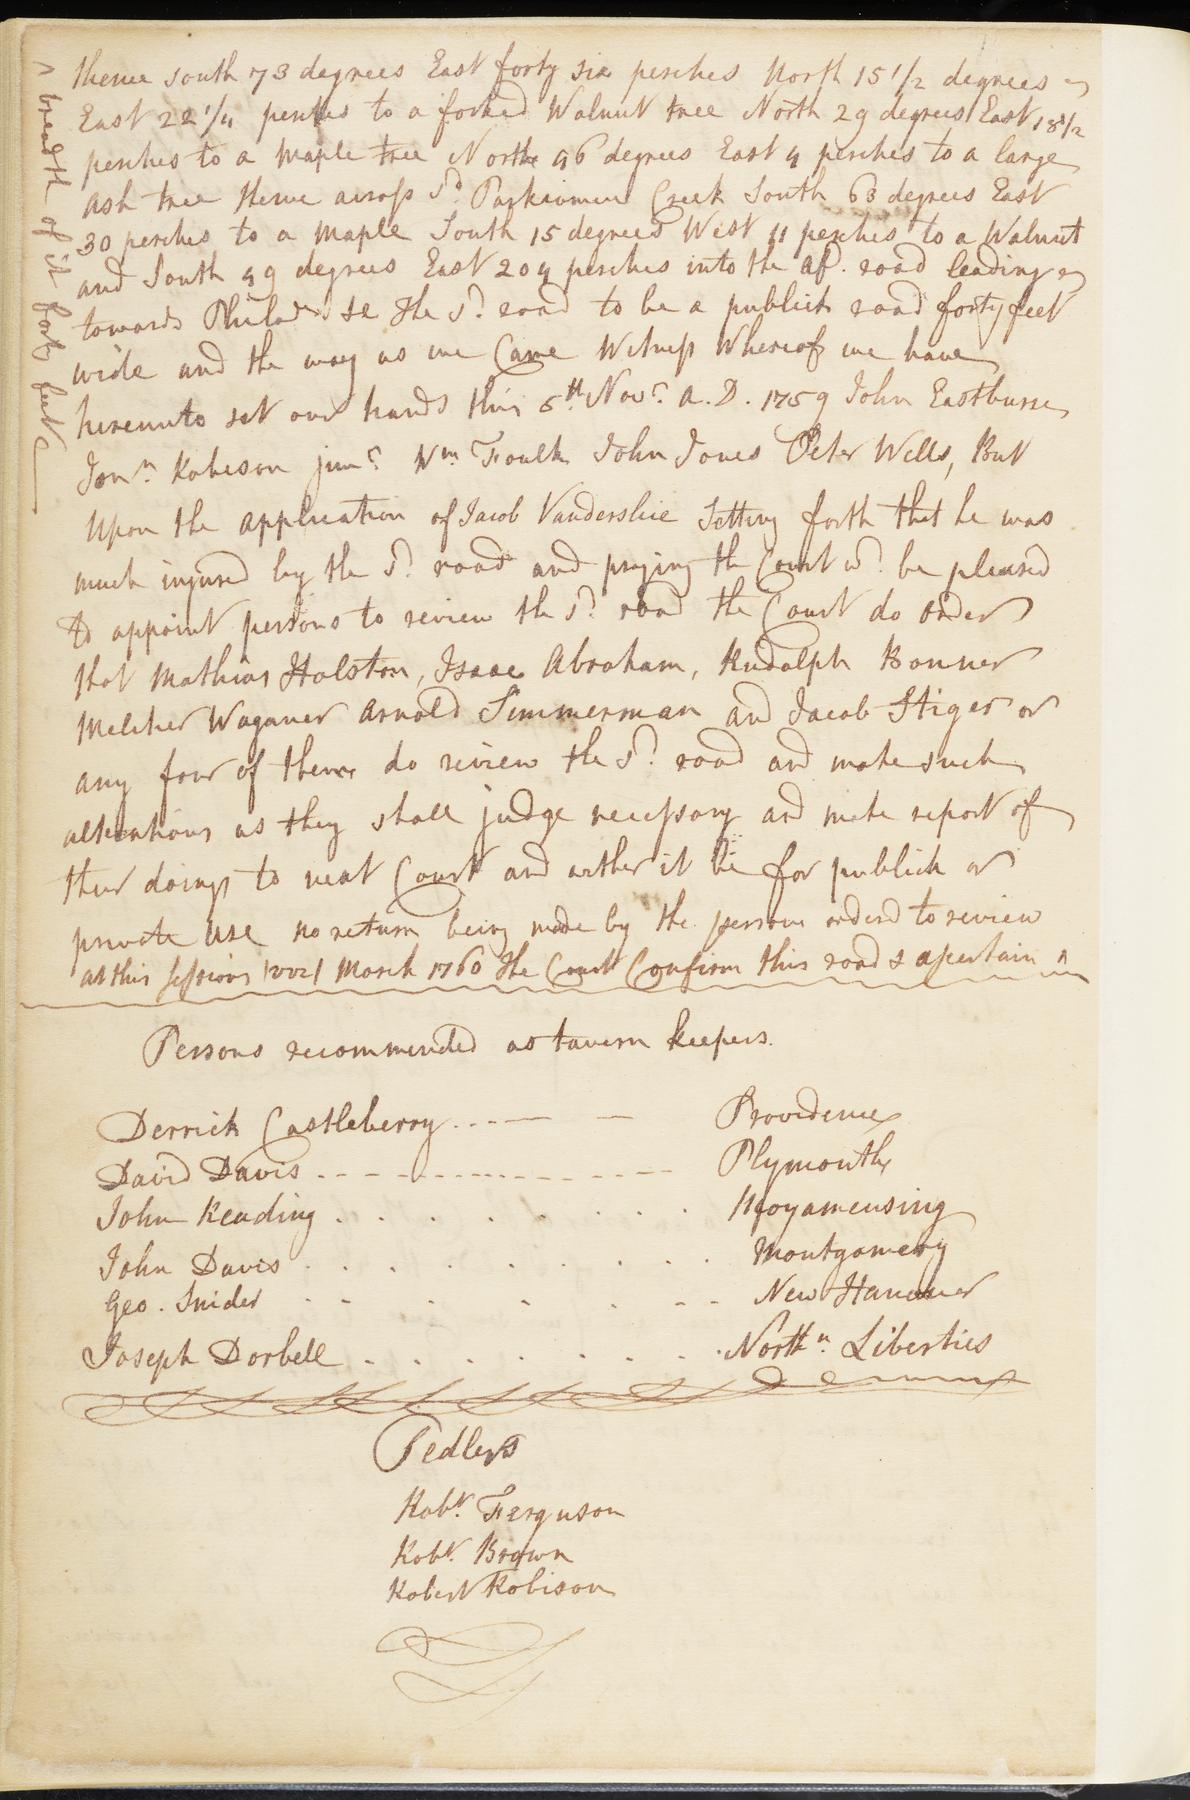 thence South 73 degrees East forty six perches North 15 1/2 degrees
East 22 1/4 perches to a forked Walnut tree North 29 degrees East 18 1/2
perches to a maple tree North 46 degrees East 4 perches to a large
ash tree thence across sd. Parkiomen Creek South 63 degrees East
30 perches to a maple South 15 degrees West 11 perches to a Walnut
and South 49 degrees East 204 perches into the af. road leading
towards Philada. se the sd. road to be a publick road forty feet
wide and the way as we Came Witness Whereof we have
hereunto set our hands this 5th. Novr. A.D. 1759 John Eastburne
Jonn. Robeson junr. Wm. Foulk John Jones Peter Wells, But
Upon the application of Jacob Vanderslice Setting forth that he was
much injured by the sd. road and praying the Court wd. be pleased
to appoint persons to review the sd. road the Court do order
that Mathias Holston, Isaac Abraham, Rudolph Bonner
Melcher Waganer Arnold Simmerman and Jacob Stiger or
any four of them do review the sd. road and make such
alterations as they shall judge necessary and make report of
their doings to next Court and wither it be for publick or
private Use no return being made by the persons ordered to review
at this sessions March 1760 the Court Confirm this road & assertain ^
^ breadth of it forty feet
Persons recommended as tavern keepers.
Derrick Castleberry ...-- - Providence
David Davis - - - - - - - - - - Plymouth
John Reading . . . . . . . . Moyamensing
John Davis . . . . . . . . . Montgomery
Geo. Snider . . . . . . . - - New Hanover
Joseph Dorbell . . . . . . . . Northn. Liberties
Pedlers
Robt. Ferguson
Robt. Brown
Robert Robison